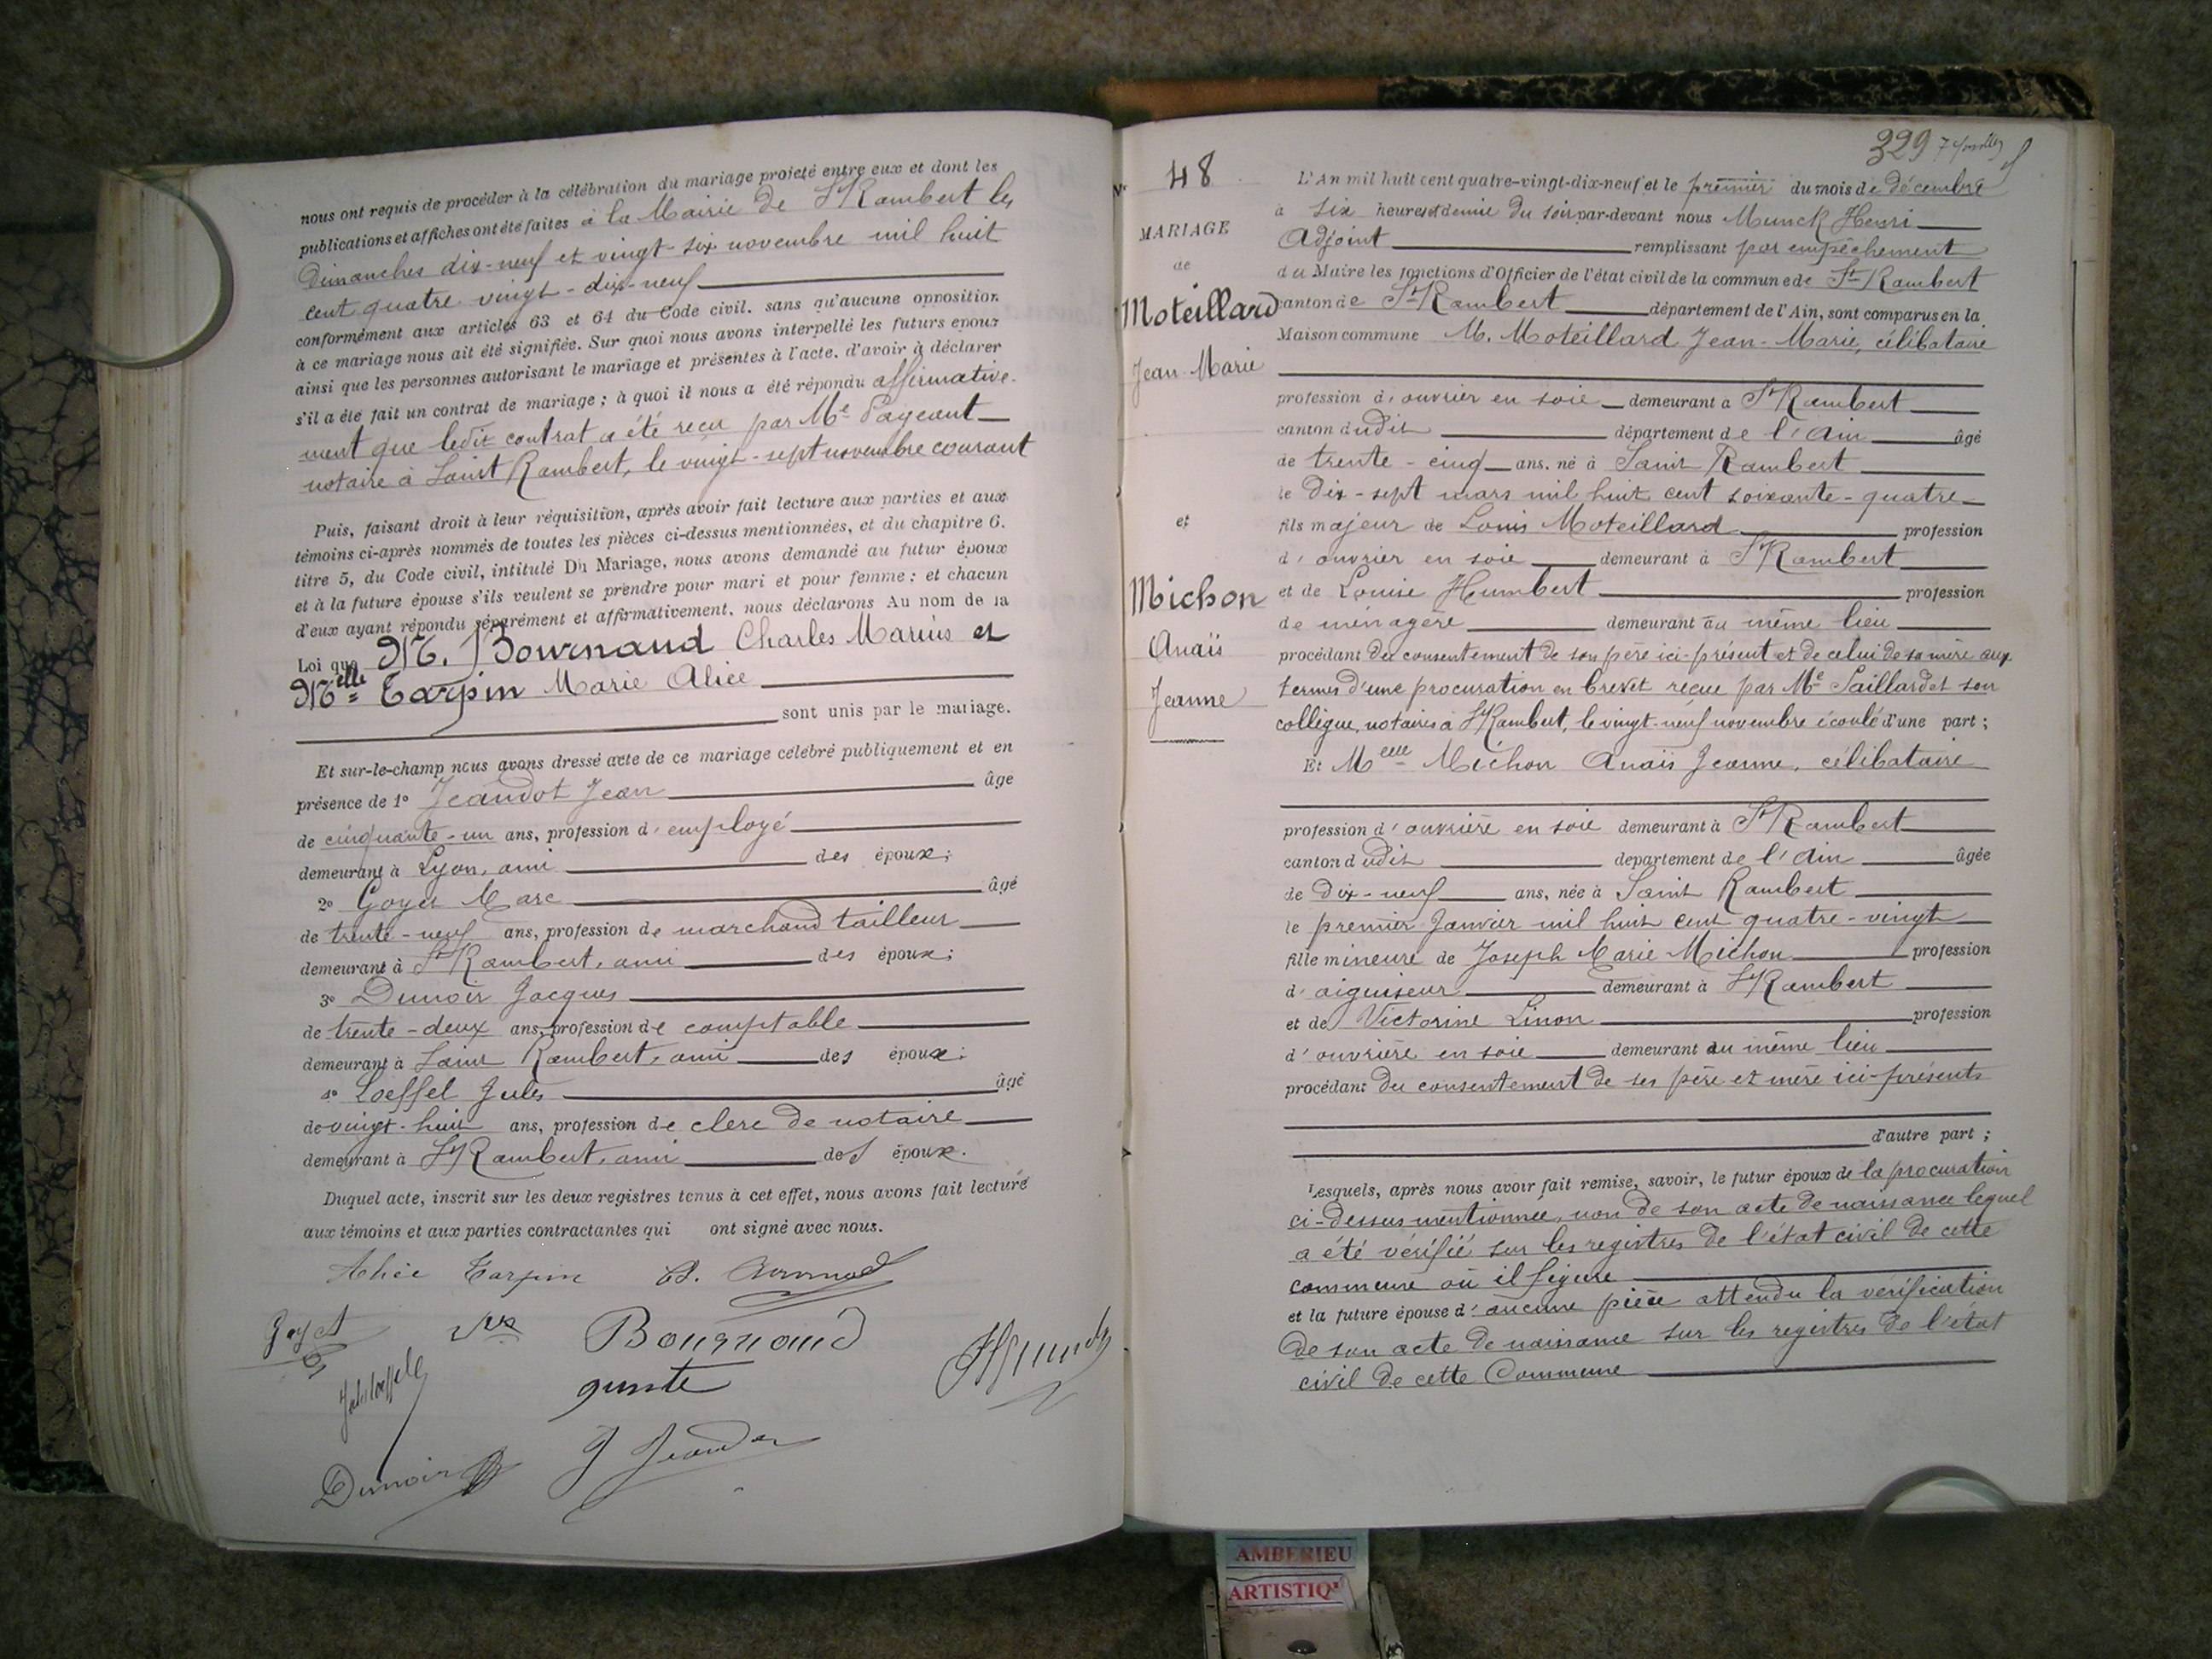 nous ont requis de procéder à la célébration du mariage projeté entre eux et dont les
publications et affiches ont été faites à la Mairie de St Rambert les
Dimanches dix-neuf et vingt-six novembre mil huit
cent quatre-vingt-dix-neuf
conformément aux articles 63 et 64 du Code civil, sans qu'aucune opposition
à ce mariage nous ait été signifiée. Sur quoi nous avons interpellé les futurs époux
ainsi que les personnes autorisant le mariage et présentes à l'acte, d'avoir à déclarer
s'il a été fait un contrat de mariage ; à quoi il nous a été répondu affirmative-
ment que ledit contrat a été reçu par Me Pageaut
notaire à Saint Rambert, le vingt-sept novembre courant
Puis, faisant droit à leur réquisition, après avoir fait lecture aux parties et aux
témoins ci-après nommés de toutes les pièces ci-dessus mentionnées, et du chapitre 6,
titre 5, du Code civil, intitulé Du Mariage, nous avons demandé au futur époux
et à la future épouse s'ils veulent se prendre pour mari et pour femme : et chacun
d'eux ayant répondu séparément et affirmativement, nous déclarons Au nom de la
Loi que M. Bournaud Charles Marius et
Melle Tarpin Marie Alice
sont unis par le mariage.
Et sur-le-champ nous avons dressé acte de ce mariage célébré publiquement et en
présence de 1° Jeandot Jean âgé
de cinquante-un ans, profession d'employé
demeurant à Lyon, ami des époux ;
2° Goyet Marc âgé
de trente-neuf ans, profession de marchand tailleur
demeurant à St Rambert, ami des époux ;
3° Dunoir Jacques
de trente-deux ans, profession de comptable
demeurant à Saint Rambert, ami des époux ;
4° Loeffel Jules âgé
de vingt-huit ans, profession de clerc de notaire
demeurant à St Rambert, ami des époux.
Duquel acte, inscrit sur les deux registres tenus à cet effet, nous avons fait lecture
aux témoins et aux parties contractantes qui ont signé avec nous.
Alice Tarpin
Goyet
Bournaud
Jules Loeffel
Dunoir
J Jeandot
329
N° 48
MARIAGE
de
Moteillard
Jean-Marie
et
Michon
Anaïs
Jeanne
L'An mil huit cent quatre-vingt-dix-neuf et le premier du mois de décembre
à six heures et demie du soir par-devant nous Munck Henri
Adjoint remplissant par empêchement
du Maire les fonctions d'Officier de l'état civil de la commune de St Rambert
canton de St Rambert département de l'Ain, sont comparus en la
Maison commune M. Moteillard Jean-Marie, célibataire
profession d'ouvrier en soie demeurant à St Rambert
canton dudit département de l'Ain âgé
de trente-cinq ans, né à Saint Rambert
le dix-sept mars mil huit cent soixante-quatre
fils majeur de Louis Moteillard profession
d'ouvrier en soie demeurant à St Rambert
et de Louise Humbert profession
de ménagère demeurant au même lieu
procédant du consentement de son père ici-présent et de celui de sa mère aux
termes d'une procuration en brevet reçue par Me Saillard et son
collègue, notaires à St Rambert, le vingt-neuf novembre écoulé d'une part ;
Et Melle Michon Anaïs Jeanne, célibataire
profession d'ouvrière en soie demeurant à St Rambert
canton dudit département de l'Ain âgée
de dix-neuf ans, née à Saint Rambert
le premier Janvier mil huit cent quatre-vingt
fille mineure de Joseph Marie Michon profession
d'aiguiseur demeurant à St Rambert
et de Victorine Linon profession
d'ouvrière en soie demeurant au même lieu
procédant du consentement de ses père et mère ici-présents
d'autre part ;
Lesquels, après nous avoir fait remise, savoir, le futur époux de la procuration
ci-dessus mentionnée, non de son acte de naissance lequel
a été vérifié sur les registres de l'état civil de cette
commune où il figure
et la future épouse d'aucune pièce attendu la vérification
de son acte de naissance sur les registres de l'état
civil de cette Commune
AMBERIEU
ARTISTIQ